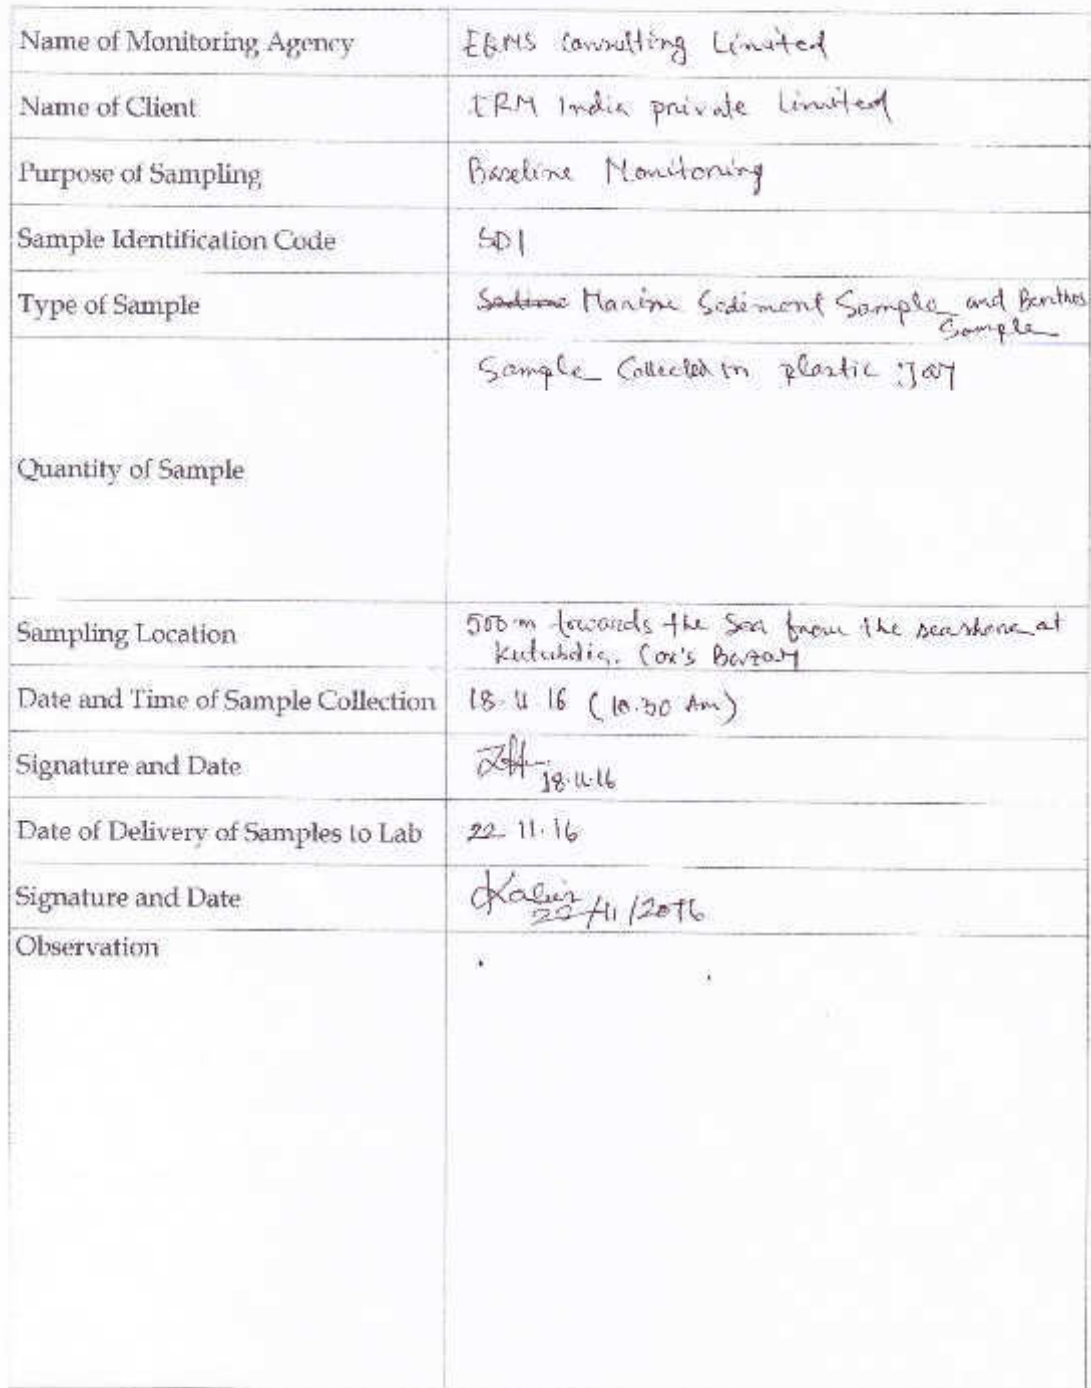 Name of Monitoring Agency EQMS Consulting Limited
Name of Client ERM India private Limited
Purpose of Sampling Baseline Monitoring
Sample Identification Code SD1
Type of Sample Marine Sediment Sample and Benthos
Sample
Sample Collected in plastic Jar
Quantity of Sample
500 m towards the Sea from the seashore at
Sampling Location
Kutubdia, Cox's Bazar
Date and Time of Sample Collection 18.11.16 (10.30 Am)
Signature and Date 18.11.16
Date of Delivery of Samples to Lab 22.11.16
Signature and Date Kabir
22/11/2016
Observation